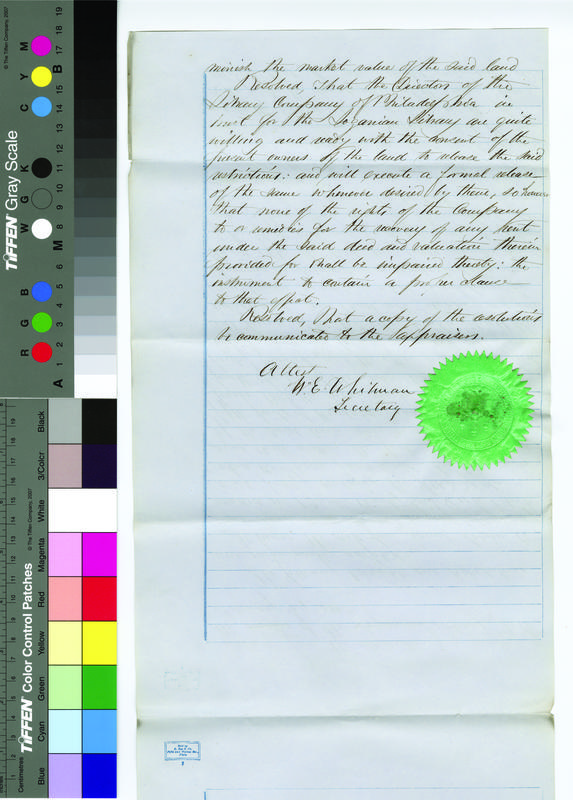 minish the market value of the said land
Resolved, That the Directors of the
Library Company of Philadelphia in
trust for the Loganian Library are quite
willing and ready with the consent of the
present owners of the land to release the said
restrictions: and will execute a formal release
of the same whenever desired by them, so however
that none of the rights of the Company
to or remedies for the recovery of any rent
under the said deed and valuation therein
provided for shall be impaired thereby: the
instrument to contain a proper clause
to that effect.
Resolved, That a copy of the resolutions
be communicated to the appraisers.
Attest
Wm E. Whitman
Secretary
TIFFEN Gray Scale
© The Tiffen Company, 2007
R G B W G K C Y M
A 1 2 3 4 5 6 M 8 9 10 11 12 13 14 15 B 17 18 19
TIFFEN Color Control Patches
© The Tiffen Company, 2007
Centimetres
Blue Cyan Green Yellow Red Magenta White 3/Color Black